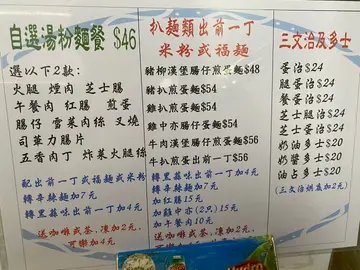 自選湯粉麵餐 $46
選以下2款:
火腿 煙肉 芝士腸
午餐肉 紅腸 煎蛋
腸仔 雪菜肉絲 叉燒
司華力腸片
五香肉丁 炸菜火腿絲
配出前一丁或福麵或米粉
轉辛辣麵加7元
轉黑蒜味出前一丁加4元
送咖啡或茶,凍加2元,
可樂加4元
扒麵類出前一丁
米粉或福麵
豬柳漢堡腸仔煎蛋麵$48
豬扒煎蛋麵$54
雞扒煎蛋麵$54
雞中亦腸仔蛋麵$54
牛肉漢堡腸仔煎蛋麵$56
牛扒煎蛋出前一丁$56
轉黑蒜味出前一丁加4元
轉辛辣麵加7元
加紅腸15元
加雞中亦(2只)15元
加午餐肉10元
送咖啡或茶,凍加2元
三文治及多士
蛋治$24
腿治$24
餐治$24
芝士腿治$24
芝士蛋治$24
奶油多士$20
奶醬多士$20
油占多士$20
(三文治烘底加2元)